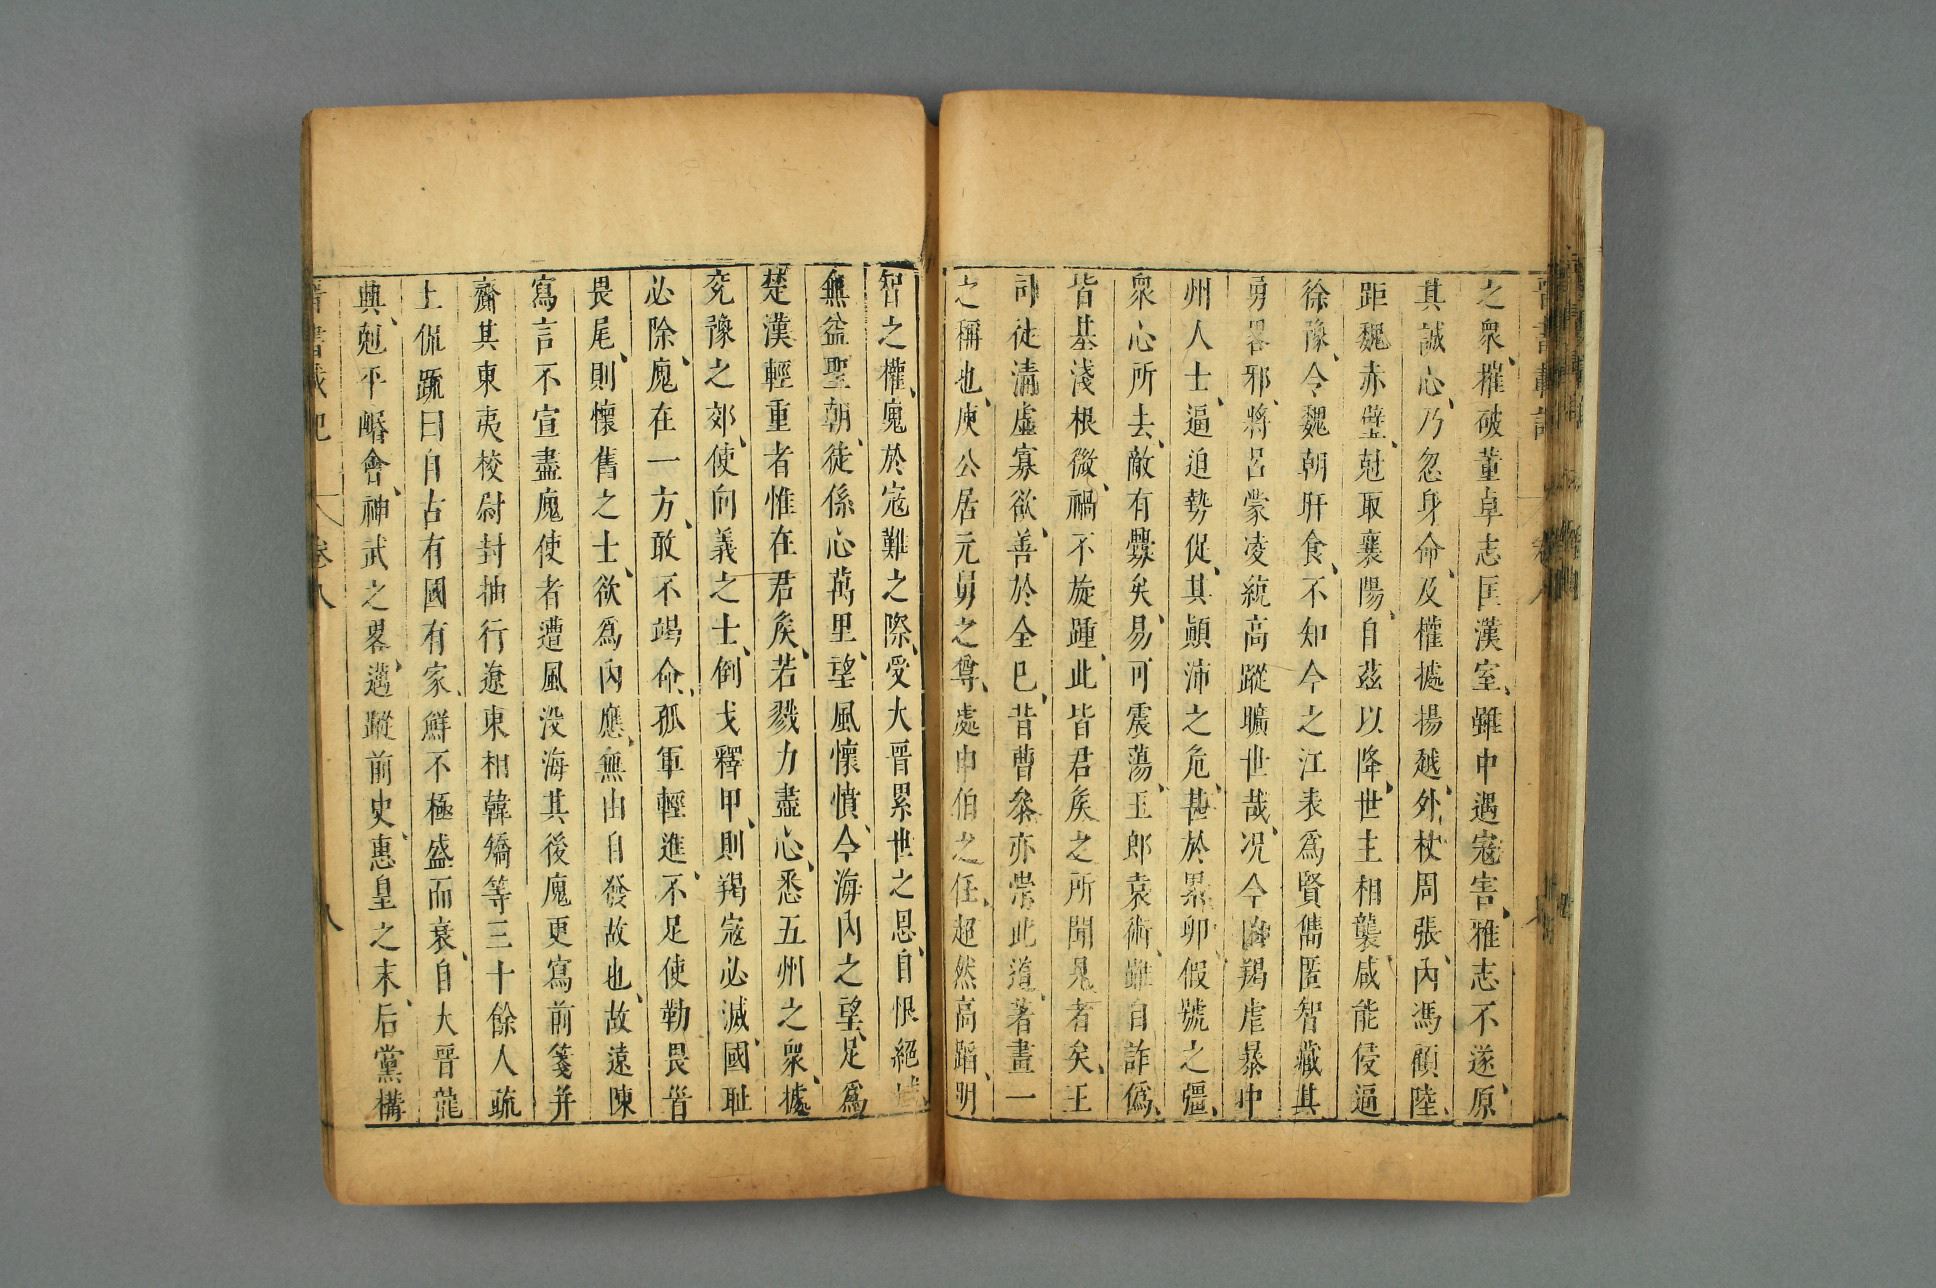 之衆、摧破董卓志匡漢室、雖中遇寇害、雅志不遂、原
其誠心、乃忽身命、及權據揚越、外杖周張、內馮顧陸、
距魏赤壁、尅取襄陽、自茲以降、世主相襲、咸能侵逼
徐豫、今魏朝旰食、不知今之江表爲賢儁匿智、藏其
勇畧邪、將呂蒙凌統高蹤曠世哉、况今凶羯虐暴中
州人士、逼迫勢促、其顚沛之危、甚於累卵、假號之彊、
衆心所去、敵有釁矣、易可震蕩、王郎袁術、雖自詐僞、
皆基淺根微、禍不旋踵、此皆君矦之所聞見者矣、王
司徒淸虛寡欲、善於全已、昔曹叅亦崇此道、著畫一
之稱也、庾公居元舅之尊、處申伯之任、超然高蹈、明
智之權、廆於寇難之際、受大晉累世之恩、自恨絕域
無益聖朝、徒係心萬里、望風懷憤、今海內之望、足爲
楚漢輕重者惟在君矦、若戮力盡心、悉五州之衆、據
兗豫之郊、使向義之士、倒戈釋甲、則羯寇必滅、國耻
必除、廆在一方、敢不竭命、孤軍輕進、不足使勒畏首
畏尾、則懷舊之士、欲爲內應、無由自發故也、故遠陳
寫言不宣盡廆使者遭風没海其後廆更寫前箋并
齎其東夷校尉封抽行遼東相韓矯等三十餘人疏
上侃䟽曰自古有國有家、鮮不極盛而衰、自大晉龍
興、尅平㟭會、神武之畧、邁蹤前史、惠皇之末、后黨構
晉書載記　卷八　八